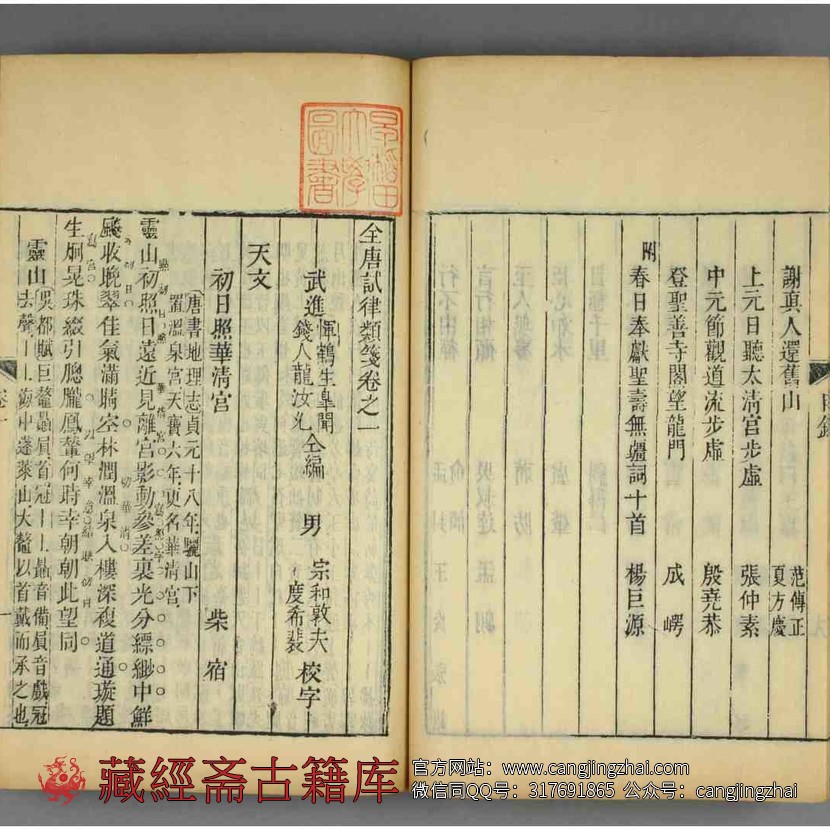 謝真人還舊山　范傳正　夏方慶
上元日聽太清宮步虛　張仲素
中元節觀道流步虛　殷堯恭
登聖善寺閣望龍門　成崿
附
春日奉獻聖壽無疆詞十首　楊巨源
早稻田大學圖書
全唐試律類箋卷之一
武進　惲鶴生皋聞　錢人龍汝允　仝編　男　宗和敦夫　度希裴　校字
天文
初日照華清宮　柴宿
唐書地理志貞元十八年驪山下
置溫泉宮天寶六年更名華清宮
靈山初照日遠近見離宮影動參差裏光分縹緲中鮮
飈收晚翠佳氣滿晴空林潤溫泉入樓深複道通璇題
生炯晃珠綴引朣朧鳳輦何時幸朝朝此望同
靈山
吳都賦巨鼇贔屭首冠｜｜贔音備屭音戲冠
去聲｜｜海中蓬萊山大鼇以首戴而承之也
藏經斋古籍库
官方网站：www.cangjingzhai.com
微信同QQ号：317691865 公众号：cangjingzhai